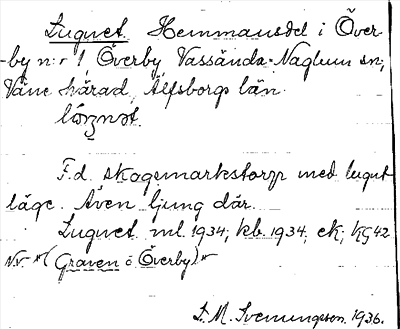 Lugnet Hemmansdel i Över-
-by n:r 1, Överby Vassända-Naglum sn;
Väne härad, Älfsborgs län.
F.d. skogsmarkstorp med lugnt
läge. Även ljung där.
Lugnet ml. 1934; kb. 1934; ek;
N.V. *(Graven ö Överby)*
L. M. Svenungsson. 1936.